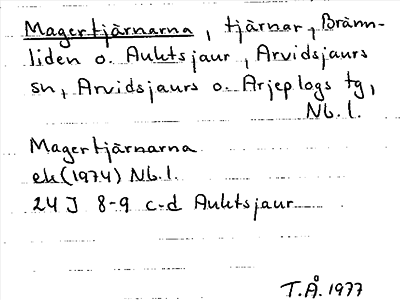 Magertjärnarna, tjärnar, Bränn-
liden o. Auktsjaur, Arvidsjaurs
sn, Arvidsjaurs o. Arjeplogs tg,
Nb. l.
Magertjärnarna
ek (1974) Nb. l.
24 J 8-9 c-d Auktsjaur
T.Å. 1977